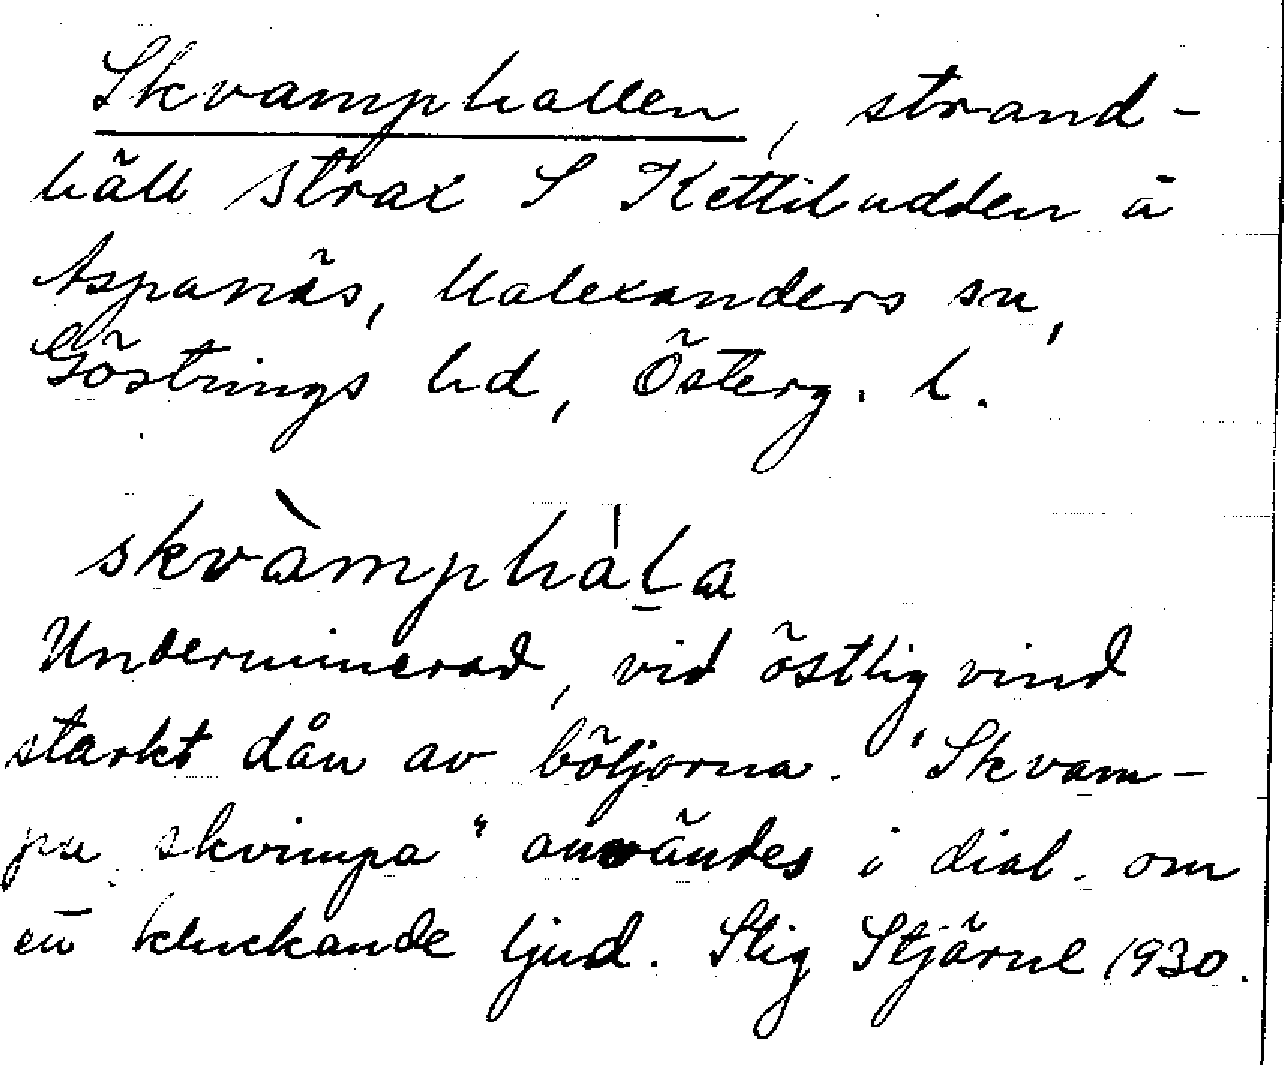 Skvamphallen, strand-
häll strax S Kettiludden å
Aspanäs, Malexanders sn,
Göstrings hd, Österg. l.
skvàmphàl̲a
Underminerad, vid östlig vind
starkt dån av böljorna. "Skvam-
pa skvimpa" användes i dial. om
ett kluckande ljud. Stig Stjärne 1930.